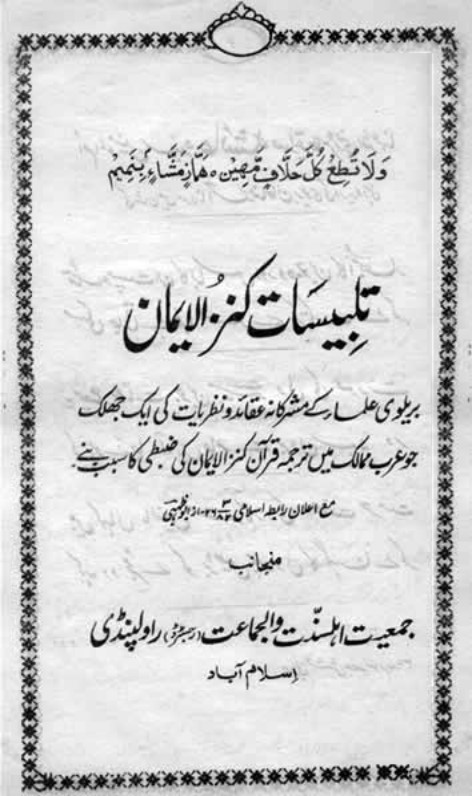 وَلَا تُطِعْ كُلَّ حَلَّافٍ مَّهِيْنٍ ہ هَمَّازٍ مَشَّاءٍ بِنَمِيْمٍ
تلبیسَات کنزُ الایمان
بریلوی علماء کے مشرکانہ عقائد و نظریات کی ایک جھلک
جو عرب ممالک میں ترجمہ قرآن کنزالایمان کی ضبطی کا سبب بنے۔
مع اعلان رابطہ اسلامی از ابوظہبی
منجانب
جمعیت اہلسنّت والجماعت (رجسٹرڈ) راولپنڈی
اِسلام آباد